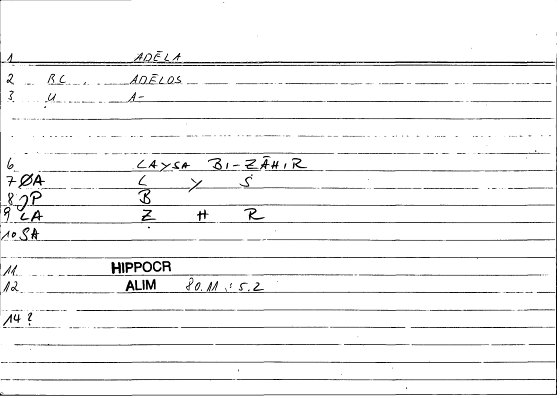 1 ADĒLA
2 BC. ADĒLOS
3 U A-
6 LAYSA BI-ẒĀHIR
7 ØA L Y S
8 JP B
9 LA Ẓ H R
10 SA
11 HIPPOCR
12 ALIM 80.11 : 5.2
14 ?